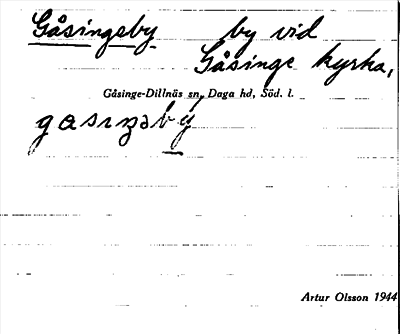 Gåsingsby by vid
Gåsinge kyrka,
Gåsinge-Dillnäs sn, Daga hd, Söd. l.
gasıŋəbý
Artur Olsson 1944